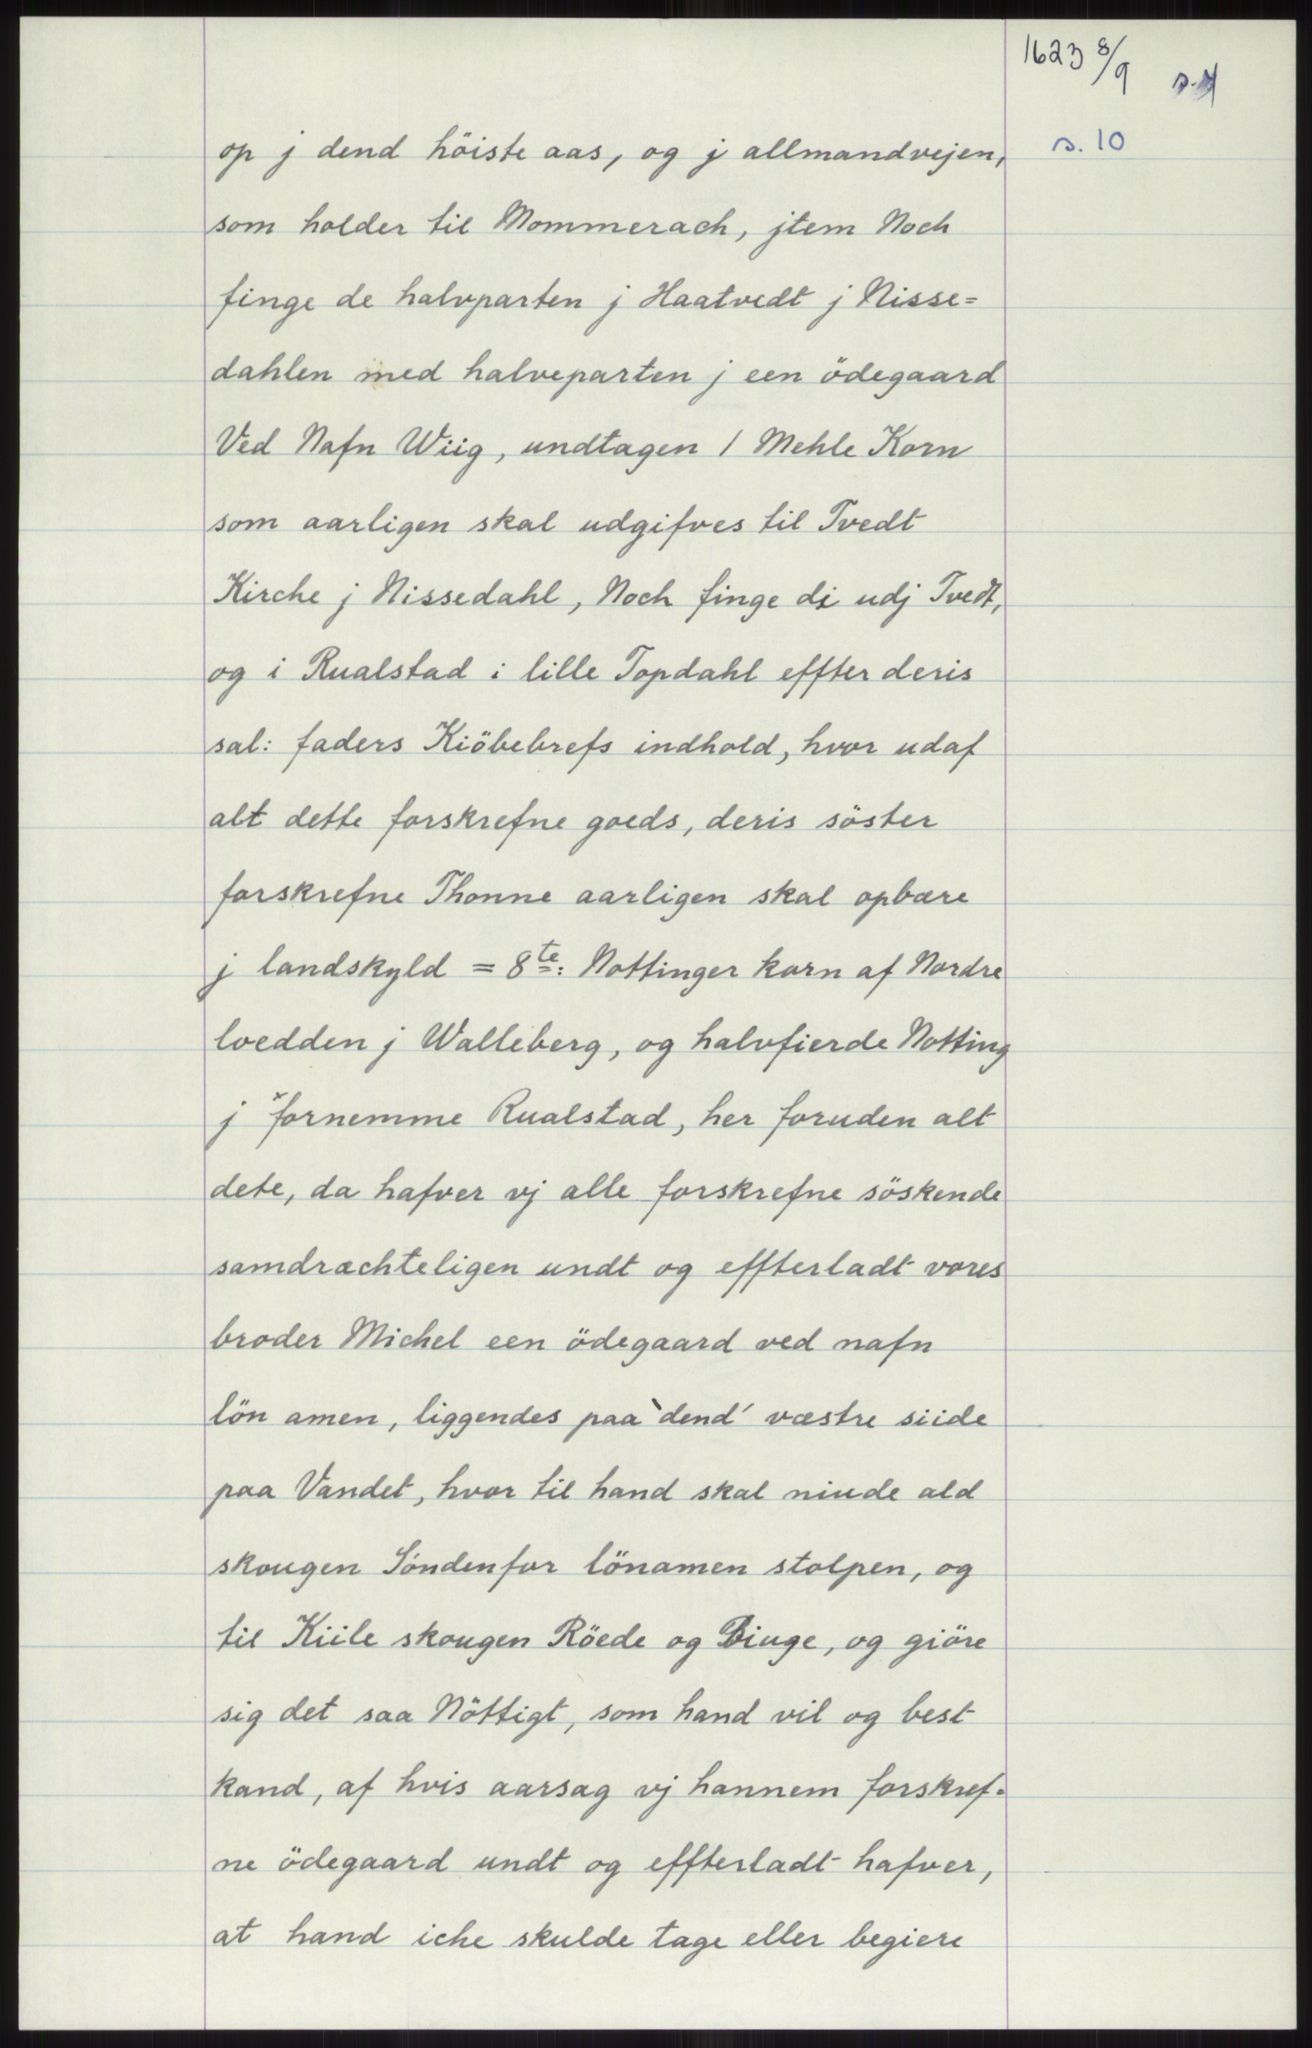 1623 8/9
s. 10
op j dend höiste aas, og j allmandvejen,
som holder til Mommerach, jtem Noch
finge de halvparten j Haatvedt j Nisse=
dahlen med halveparten j een ödegaard
Ved Nafn Wiig, undtagen 1 Mehle Korn
som aarligen skal udgifves til Tvedt
Kirche j Nissedahl, Noch finge di udj Tvedt,
og i Rualstad i lille Topdahl effter deris
sal: faders Kiöbebrefs indhold, hvor udaf
alt dette forskrefne goeds, deris söster
forskrefne Thonne aarligen skal opbære
j landskyld = 8te: Nottinger korn af Nordre
loedden j Walleberg, og halvfierde Notting
j fornemme Rualstad, her foruden alt
dete, da hafver vj alle forskrefne söskende
samdræchteligen undt og effterladt vores
broder Michel een ödegaard ved nafn
lön amen, liggendes paa `dend´ væstre siide
paa Vandet, hvor til hand skal niude ald
skougen Söndenfor lönamen stolpen, og
til Kiile skougen Röede og Biuge, og giöre
sig det saa Nöttigt, som hand vil og best
kand, af hvis aarsag vj hannem forskref=
ne ödegaard undt og effterladt hafver,
at hand iche skulde tage eller begiere